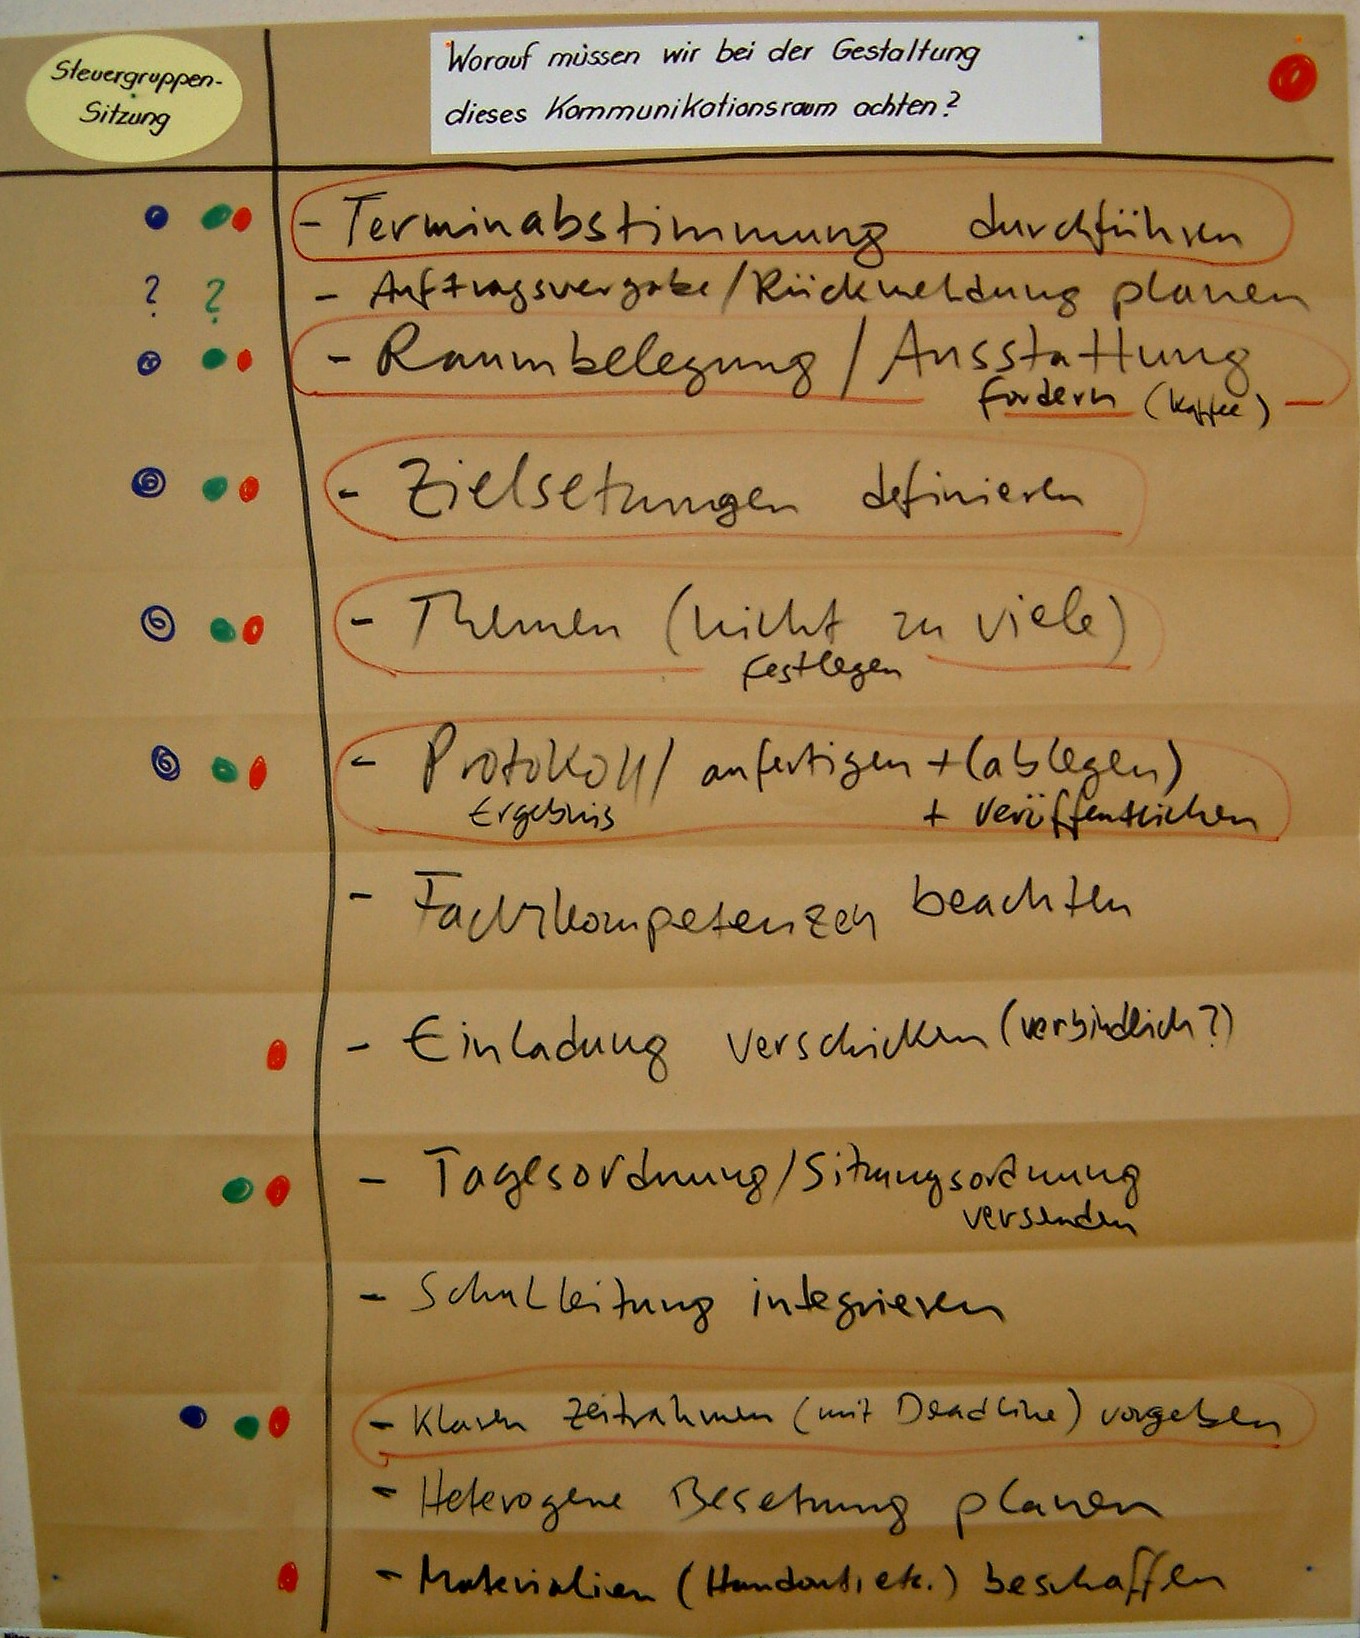 Steuergruppen-
Sitzung
Worauf müssen wir bei der Gestaltung
dieses Kommunikationsraum achten?
- Terminabstimmung durchführen
? ? - Auftragsvergabe/Rückmeldung planen
- Raumbelegung / Ausstattung
fordern (Kaffee)
- Zielsetzungen definieren
- Themen (nicht zu viele)
festlegen
- Protokoll/ anfertigen + (ablegen)
Ergebnis + veröffentlichen
- Fachkompetenzen beachten
- Einladung verschicken (verbindlich?)
- Tagesordnung/Sitzungsordnung
versenden
- Schulleitung integrieren
- Klaren Zeitrahmen (mit Deadline) vorgeben
- Heterogene Besetzung planen
- Materialien (Handouts etc.) beschaffen